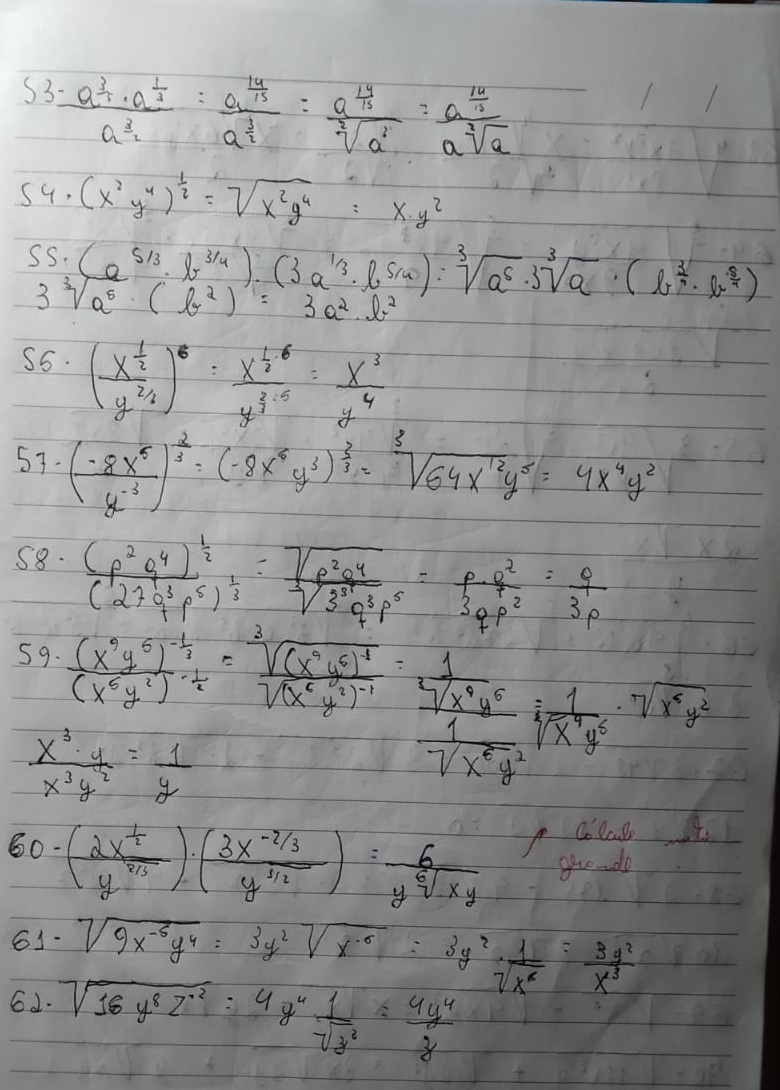 53- a^{3/5} · a^{1/3} / a^{3/2} = a^{14/15} / a^{3/2} = a^{14/15} / ²√a³ = a^{14/15} / a ²√a
54 · (x² y⁴)^{1/2} = √x²y⁴ = x · y²
55 · (a^{5/3} · b^{3/4}) · (3a^{1/3} · b^{5/4}) = ³√a⁵ · 3 ³√a · (b^{3/4} · b^{5/4})
3 ³√a⁶ · (b²) = 3a² · b²
56 · (x^{1/2} / y^{2/3})⁶ = x^{1/2 · 6} / y^{2/3 · 6} = x³ / y⁴
57 - (-8x⁶ / y^{-3})^{2/3} = (-8x⁶ y³)^{2/3} = ³√64x¹²y⁶ = 4x⁴y²
58 - (p² q⁴)^{1/2} / (27q³ p⁶)^{1/3} = √p²q⁴ / ³√3³ q³p⁶ = p · q² / 3qp² = q / 3p
59 - (x⁹y⁶)^{-1/3} / (x⁶y²)^{-1/2} = ³√(x⁹y⁶)^{-1} / √(x⁶y²)^{-1} = 1 / ³√x⁹y⁶ / 1 / √x⁶y² = 1 / ³√x⁹y⁶ · √x⁶y²
x³ · y / x³y² = 1 / y
60 - (2x^{1/2} / y^{2/3}) · (3x^{-2/3} / y^{1/2}) = 6 / y ⁶√xy
Cálculo mto
grande
61 - √9x^{-6}y⁴ = 3y² √x^{-6} = 3y² · 1 / √x⁶ = 3y² / x³
62 · √16 y⁸ z^{-2} = 4y⁴ 1 / √z² = 4y⁴ / z